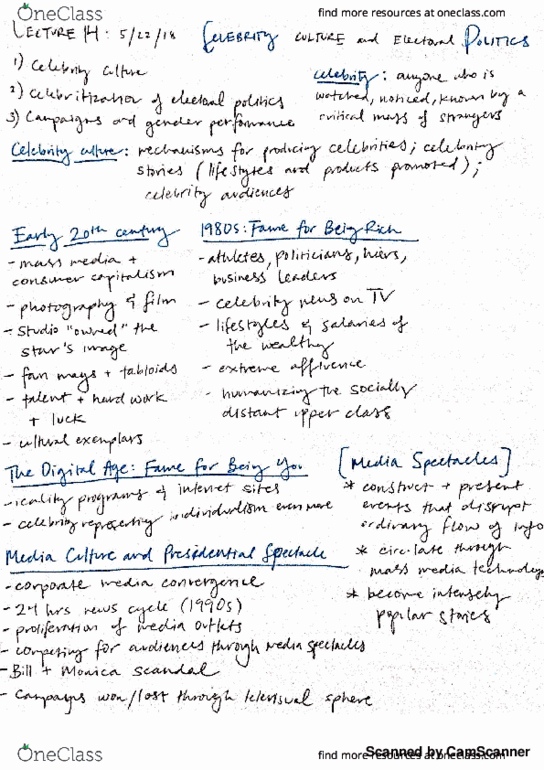 OneClass
find more resources at oneclass.com
LECTURE 14: 5/22/18 CELEBRITY CULTURE and Electoral POLITICS
1) Celebrity Culture
2) Celebritization of electoral politics
3) Campaigns and gender performance
celebrity: anyone who is
watched, noticed, known by a
critical mass of strangers
Celebrity culture: mechanisms for producing celebrities; celebrity
stories (lifestyles and products promoted);
celebrity audiences
Early 20th century
- mass media +
consumer capitalism
- photography & film
- studio "owned" the
star's image
- fan mags + tabloids
- talent + hard work
+ luck
- cultural exemplars
1980s: Fame for Being Rich
- athletes, politicians, heirs,
business leaders
- celebrity news on TV
- lifestyles & salaries of
the wealthy
- extreme affluence
- humanizing the socially
distant upper class
The Digital Age: Fame for Being You
- reality programs & internet sites
- celebrity representing individualism even more
[Media Spectacles]
* construct + present
events that disrupt
ordinary flow of info
* circulate through
mass media technology
* become intensely
popular stories
Media Culture and Presidential Spectacle
- corporate media convergence
- 24 hrs news cycle (1990s)
- proliferation of media outlets
- competing for audiences through media spectacles
- Bill + Monica scandal
- Campaigns won/lost through televisual sphere
OneClass
find more resources at oneclass.com
Scanned by CamScanner